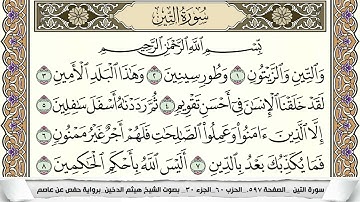 سورة التين
بسم الله الرحمن الرحيم
والتين والزيتون ١ وطور سينين ٢ وهذا البلد الأمين ٣
لقد خلقنا الإنسان في أحسن تقويم ٤ ثم رددناه أسفل سافلين ٥
إلا الذين ءامنوا وعملوا الصالحات فلهم أجر غير ممنون ٦
فما يكذبك بعد بالدين ٧ أليس الله بأحكم الحاكمين ٨
سورة التين _ الصفحة ٥٩٧_ الحزب ٦٠_ الجزء ٣٠_ بصوت الشيخ هيثم الدخين_ برواية حفص عن عاصم